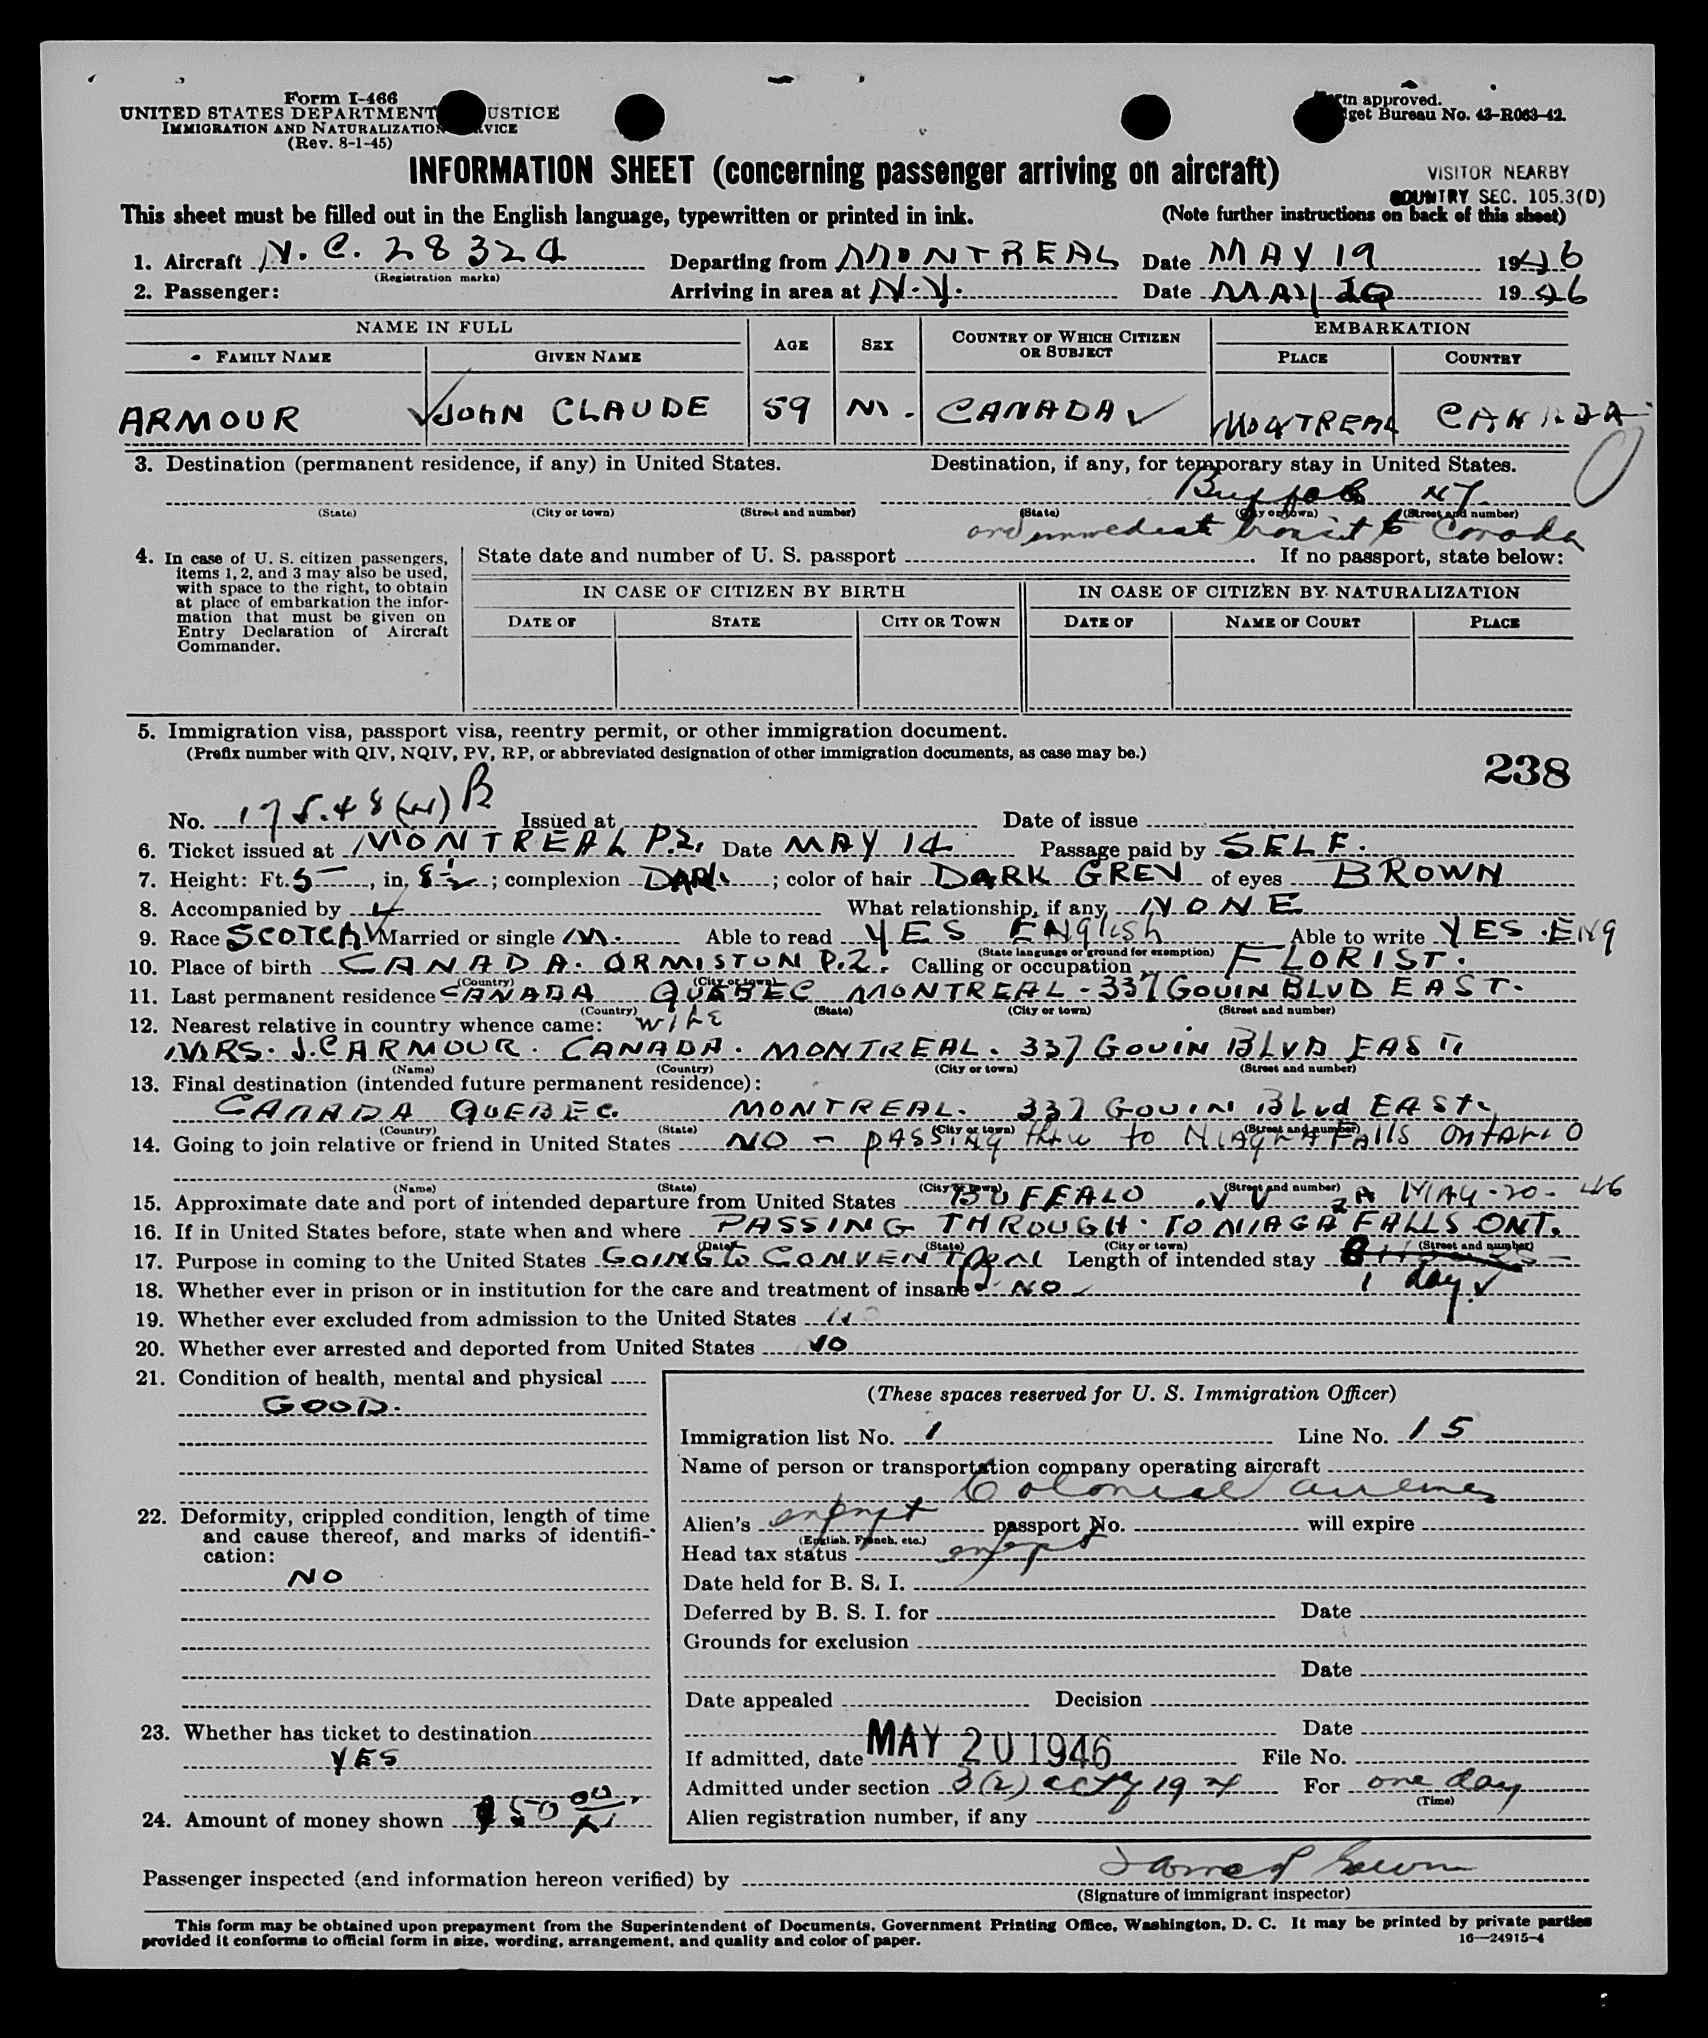 Form I-466
UNITED STATES DEPARTMENT JUSTICE
IMMIGRATION AND NATURALIZATION SERVICE
(Rev. 8-1-45)
Form approved.
Budget Bureau No. 43-R063-42.
INFORMATION SHEET (concerning passenger arriving on aircraft)
VISITOR NEARBY
COUNTRY SEC. 105.3(D)
This sheet must be filled out in the English language, typewritten or printed in ink.
(Note further instructions on back of this sheet)
1. Aircraft N.C. 28324 Departing from MONTREAL Date MAY 19 1946
(Registration marks)
2. Passenger: Arriving in area at N.Y. Date MAY 19 1946
NAME IN FULL AGE SEX COUNTRY OF WHICH CITIZEN OR SUBJECT EMBARKATION
FAMILY NAME GIVEN NAME PLACE COUNTRY
ARMOUR JOHN CLAUDE 59 M. CANADA MONTREAL CANADA
3. Destination (permanent residence, if any) in United States. Destination, if any, for temporary stay in United States.
Buffalo NY
(State) (City or town) (Street and number) (State) (City or town) (Street and number)
and immediate transit to Canada
4. In case of U. S. citizen passengers, items 1, 2, and 3 may also be used, with space to the right, to obtain at place of embarkation the information that must be given on Entry Declaration of Aircraft Commander.
State date and number of U. S. passport If no passport, state below:
IN CASE OF CITIZEN BY BIRTH IN CASE OF CITIZEN BY NATURALIZATION
DATE OF STATE CITY OR TOWN DATE OF NAME OF COURT PLACE
5. Immigration visa, passport visa, reentry permit, or other immigration document.
(Prefix number with QIV, NQIV, PV, RP, or abbreviated designation of other immigration documents, as case may be.)
238
No. 175.48 Issued at Date of issue
6. Ticket issued at MONTREAL P.2. Date MAY 14 Passage paid by SELF.
7. Height: Ft. 5, in. 8½; complexion DARK; color of hair DARK GREY of eyes BROWN
8. Accompanied by What relationship, if any NONE
9. Race SCOTCH Married or single M. Able to read YES ENglish Able to write YES. ENg
(State language or ground for exemption)
10. Place of birth CANADA. ORMISTON P.2. Calling or occupation FLORIST.
(Country) (City or town)
11. Last permanent residence CANADA QUEBEC MONTREAL - 337 GOUIN BLVD EAST.
(Country) (State) (City or town) (Street and number)
12. Nearest relative in country whence came: WIFE
MRS. J.C ARMOUR. CANADA. MONTREAL. 337 GOUIN BLVD EAST
(Name) (Country) (City or town) (Street and number)
13. Final destination (intended future permanent residence):
CANADA QUEBEC. MONTREAL. 337 GOUIN BLvd EAST.
(Country) (State) (City or town) (Street and number)
14. Going to join relative or friend in United States NO - pASSINg thru to NIAgRA FAlls ONtARIO
(Name) (State) (City or town) (Street and number)
15. Approximate date and port of intended departure from United States BUFFALO MAY-20-46
16. If in United States before, state when and where PASSING THROUGH. TO NIAGA FALLS ONT.
(Date) (State) (City or town) (Street and number)
17. Purpose in coming to the United States GOING to CONVENTION Length of intended stay
1 day
18. Whether ever in prison or in institution for the care and treatment of insane NO
19. Whether ever excluded from admission to the United States NO
20. Whether ever arrested and deported from United States NO
21. Condition of health, mental and physical
GOOD.
22. Deformity, crippled condition, length of time and cause thereof, and marks of identification:
NO
23. Whether has ticket to destination
YES
24. Amount of money shown $50 00
(These spaces reserved for U. S. Immigration Officer)
Immigration list No. 1 Line No. 15
Name of person or transportation company operating aircraft
Colonial Airlines
Alien's exempt passport No. will expire
(English, French, etc.)
Head tax status exempt
Date held for B. S. I.
Deferred by B. S. I. for Date
Grounds for exclusion
Date
Date appealed Decision
Date
If admitted, date MAY 20 1946 File No.
Admitted under section 3(2) act of 1924 For one day
(Time)
Alien registration number, if any
Passenger inspected (and information hereon verified) by
(Signature of immigrant inspector)
This form may be obtained upon prepayment from the Superintendent of Documents, Government Printing Office, Washington, D. C. It may be printed by private parties
provided it conforms to official form in size, wording, arrangement, and quality and color of paper.
16—24915-4